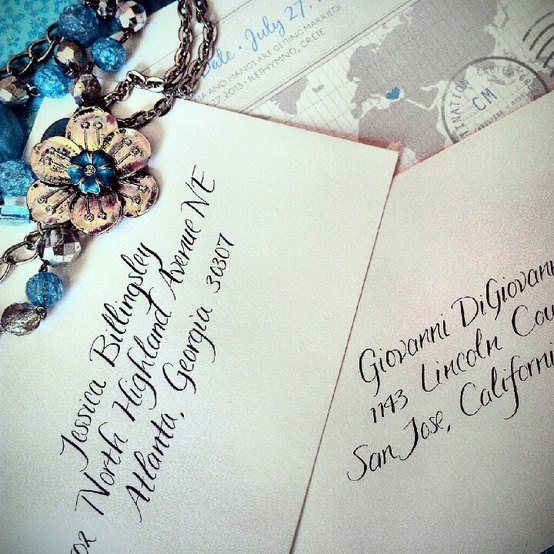 Date · July 27
ARE GETTING MARRIED!
27, 2013 · RETHYMNO, CRETE
CM
Jessica Billingsley
702 North Highland Avenue NE
Atlanta, Georgia 30307
Giovanni DiGiovann
1143 Lincoln Cou
San Jose, Californi